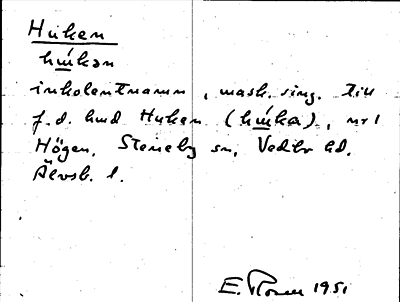 Huken
hu̱´kan
inkolentnamn, mask. sing. till
f.d. hmd Huken (hu̱´ka), nr 1
Högen, Steneby sn, Vedbo hd.
Älvsb. l.
E. 1951